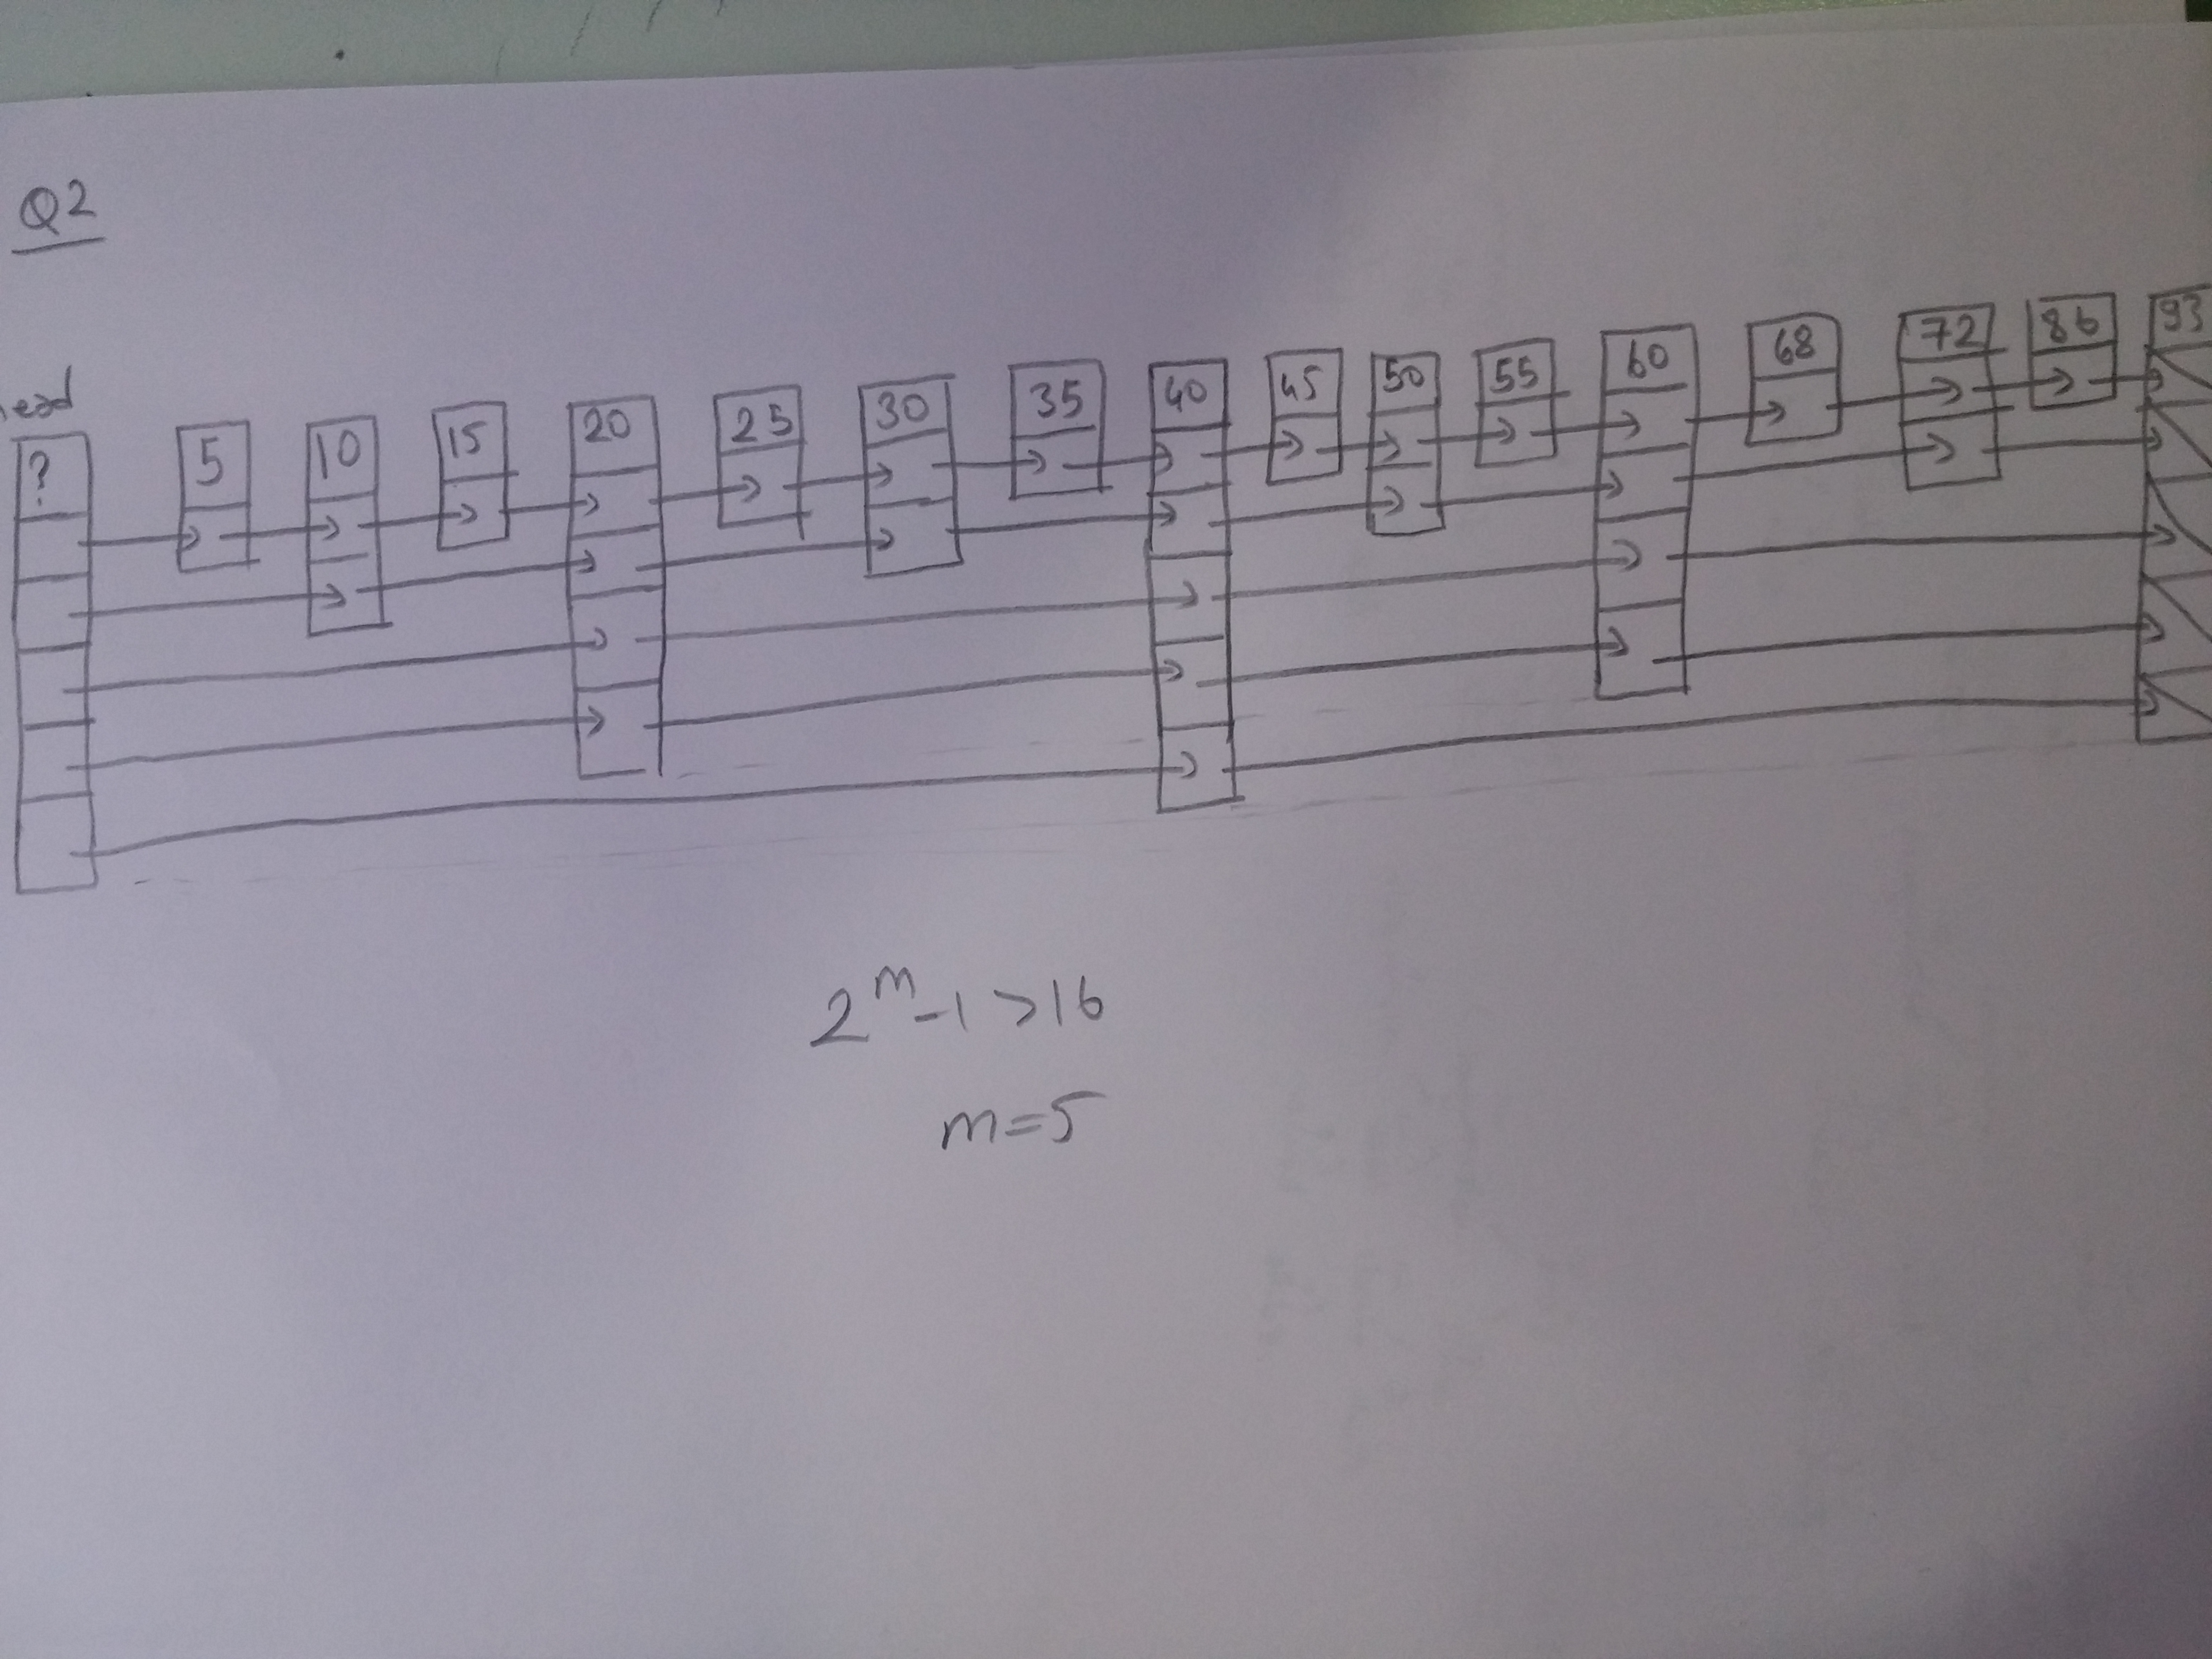 Q2
head
? 5 10 15 20 25 30 35 40 45 50 55 60 68 72 86 93
2^m - 1 > 16
m = 5